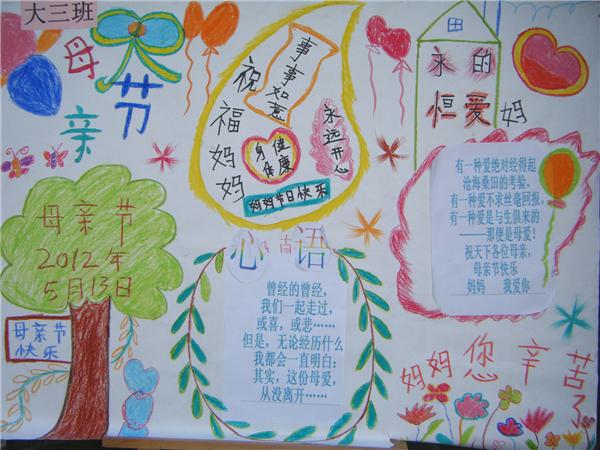 大三班
母亲节
祝福妈妈
事事如意
身体健康
永远开心
妈妈节日快乐
永恒的爱
妈
有一种爱绝对经得起
沧海桑田的考验，
有一种爱不求丝毫回报，
有一种爱是与生俱来的
——那便是母爱！
祝天下各位母亲，
母亲节快乐
妈妈 我爱你
母亲节
2012年
5月13日
母亲节
快乐
心语
曾经的曾经，
我们一起走过，
或喜，或悲……
但是，无论经历什么
我都会一直明白：
其实，这份母爱，
从没离开……
妈妈您辛苦了